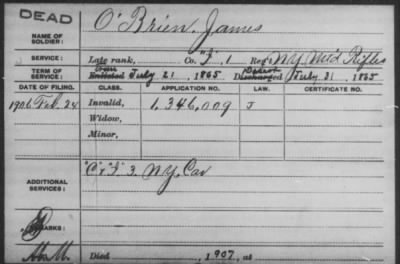 DEAD
NAME OF SOLDIER: O'Brien, James
SERVICE: Late rank, Co. "F", 1 Reg't N.Y. M't'd Rifles
TERM OF SERVICE: Enlisted July 21 1865 Discharged July 31, 1865
DATE OF FILING. CLASS. APPLICATION NO. LAW. CERTIFICATE NO.
1906 Feb. 24 Invalid, 1,346,009 J
Widow,
Minor,
ADDITIONAL SERVICES: 3, N.Y. Cav
REMARKS:
Died 1907, at